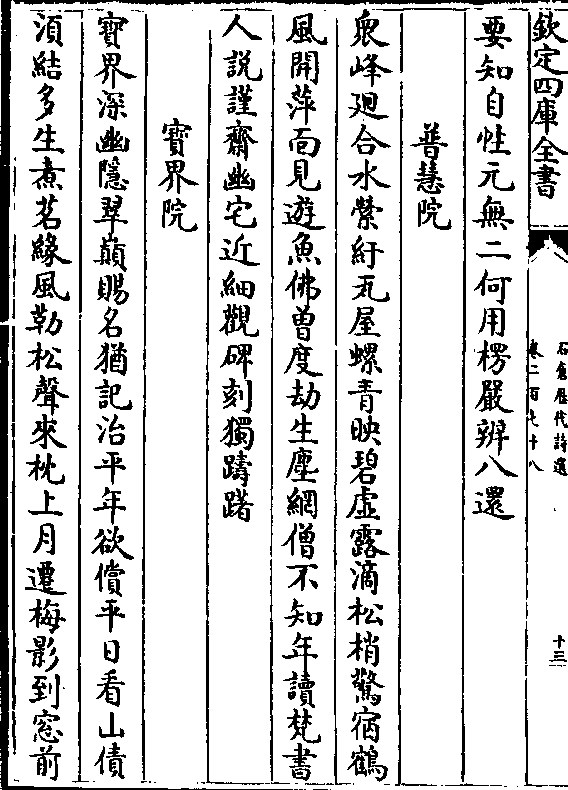 欽定四庫全書
石倉歷代詩選
卷二百七十八
十三
要知自性元無二何用楞嚴辨八還
普慧院
衆峰廻合水縈紆瓦屋螺青映碧虛露滴松梢驚宿鶴
風開萍面見遊魚佛曽度劫生塵網僧不知年讀梵書
人説謹齋幽宅近細觀碑刻獨躊躇
寶界院
寶界深幽隱翠巔賜名猶記治平年欲償平日看山債
須結多生煮茗緣風勒松聲來枕上月遷梅影到窓前